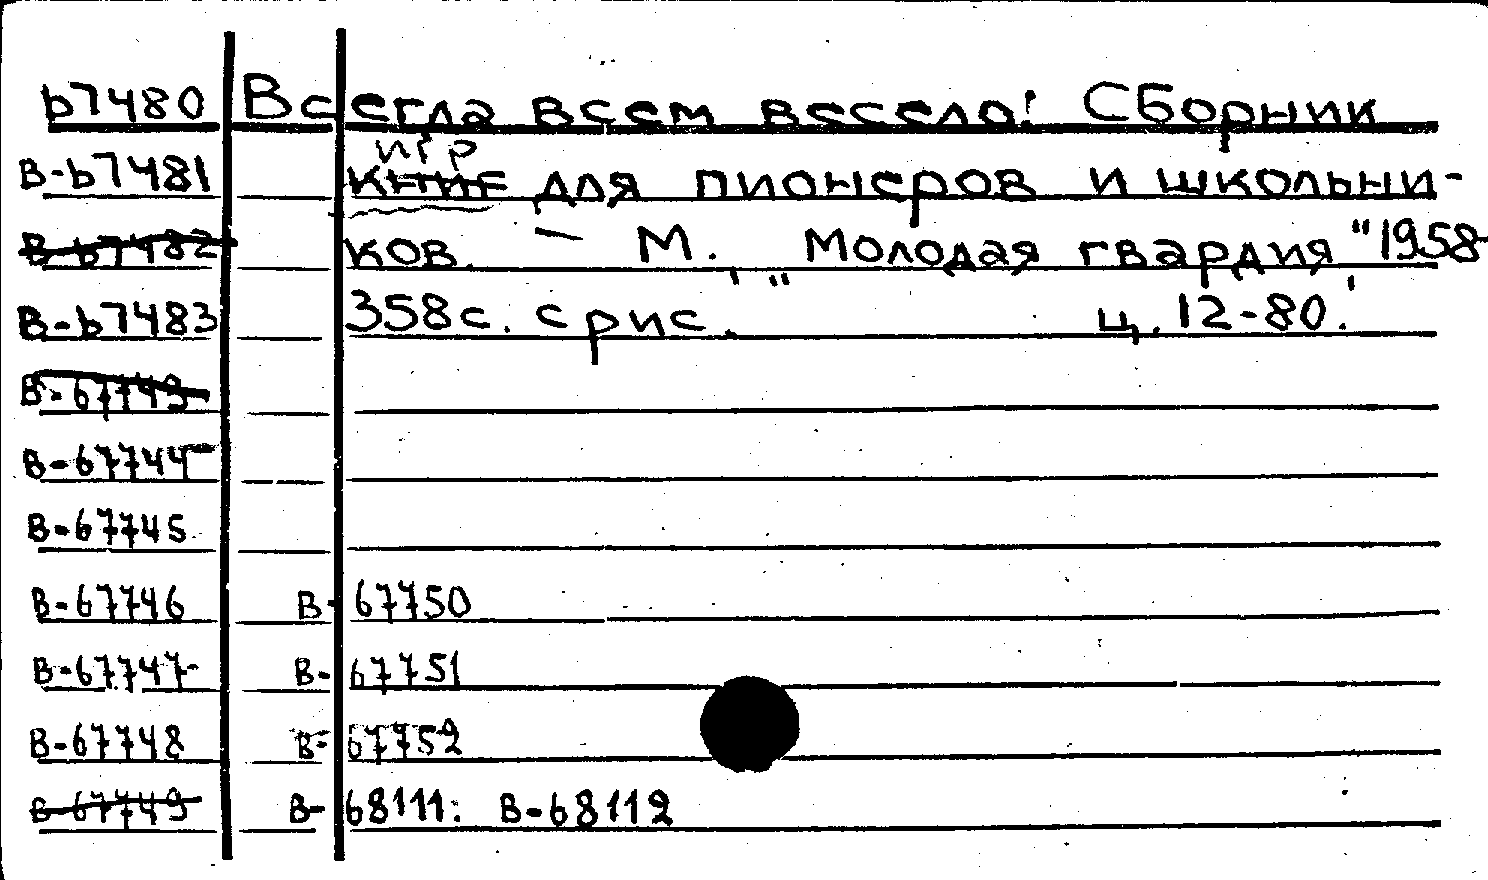 67480 Всегда всем весело! Сборник
игр
В-67481 книг для пионеров и школьни-
В-67482 ков. - М., "Молодая гвардия", 1958
В-67483 358с. с рис. ц. 12-80.
В-67743
В-67744
В-67745
В-67746 В-67750
В-67747 В-67751
В-67748 В-67752
В-67749 В-68111: В-68112